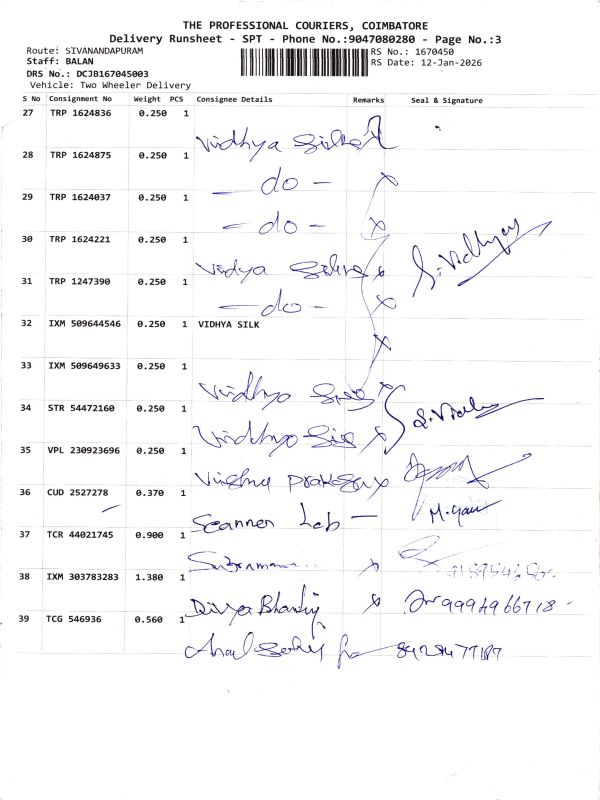 THE PROFESSIONAL COURIERS, COIMBATORE
Delivery Runsheet - SPT - Phone No.:9047080280 - Page No.:3
Route: SIVANANDAPURAM
Staff: BALAN
DRS No.: DCJB167045003
Vehicle: Two Wheeler Delivery
RS No.: 1670450
RS Date: 12-Jan-2026
S No Consignment No Weight PCS Consignee Details Remarks Seal & Signature
27 TRP 1624836 0.250 1
Vidhya Silks
28 TRP 1624875 0.250 1
— do —
29 TRP 1624037 0.250 1
— do —
30 TRP 1624221 0.250 1
Vidya Silks S. Vidhya
31 TRP 1247390 0.250 1
— do —
32 IXM 509644546 0.250 1 VIDHYA SILK
33 IXM 509649633 0.250 1
Vidhya
34 STR 54472160 0.250 1
Vidhya
35 VPL 230923696 0.250 1
Vishnu
36 CUD 2527278 0.370 1
Scanner Lab — M.
37 TCR 44021745 0.900 1
38 IXM 303783283 1.380 1
Divya Bharathi 9994966718
39 TCG 546936 0.560 1